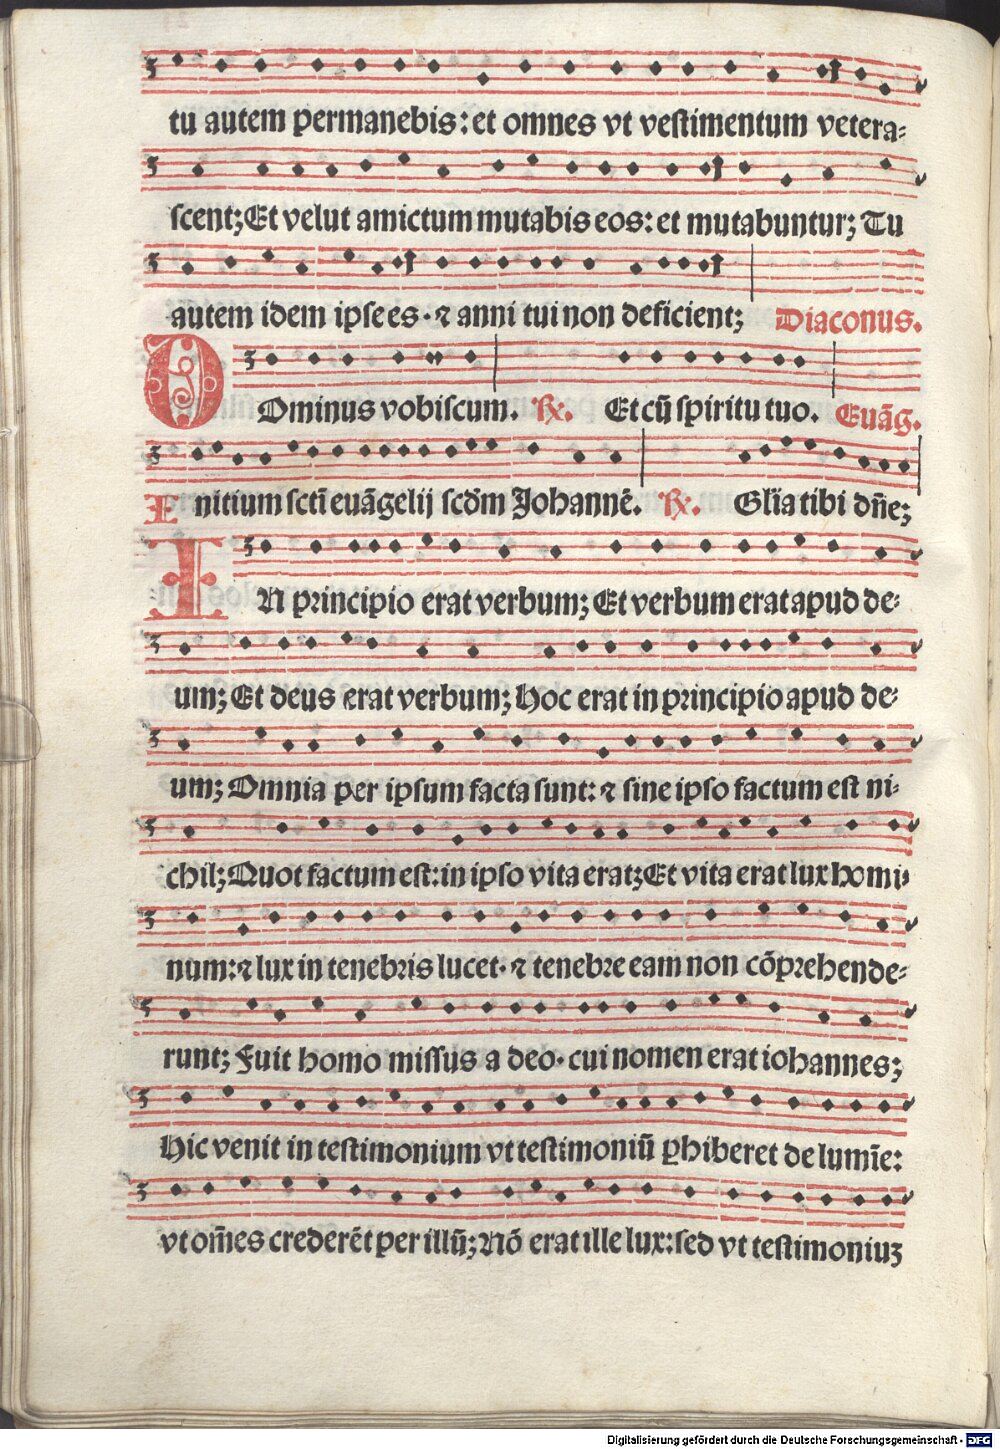 tu autem permanebis: et omnes vt vestimentum vetera=
scent; Et velut amictum mutabis eos: et mutabuntur; Tu
autem idem ipse es · ⁊ anni tui non deficient; Diaconus.
DOminus vobiscum. ℟. Et cū spiritu tuo. Euāg.
Initium scti euāgelij scd̄m Johannē. ℟. Glīa tibi dn̄e;
IN principio erat verbum; Et verbum erat apud de=
um; Et deus erat verbum; Hoc erat in principio apud de=
um; Omnia per ipsum facta sunt: ⁊ sine ipso factum est ni=
chil; Quot factum est: in ipso vita erat; Et vita erat lux homi=
num: ⁊ lux in tenebris lucet · ⁊ tenebre eam non cōprehende=
runt; Fuit homo missus a deo · cui nomen erat iohannes;
Hic venit in testimonium vt testimoniū ꝑhiberet de lumīe:
vt om̄es crederēt per illū; Nō erat ille lux: sed vt testimoniuꝫ
Digitalisierung gefördert durch die Deutsche Forschungsgemeinschaft - DFG